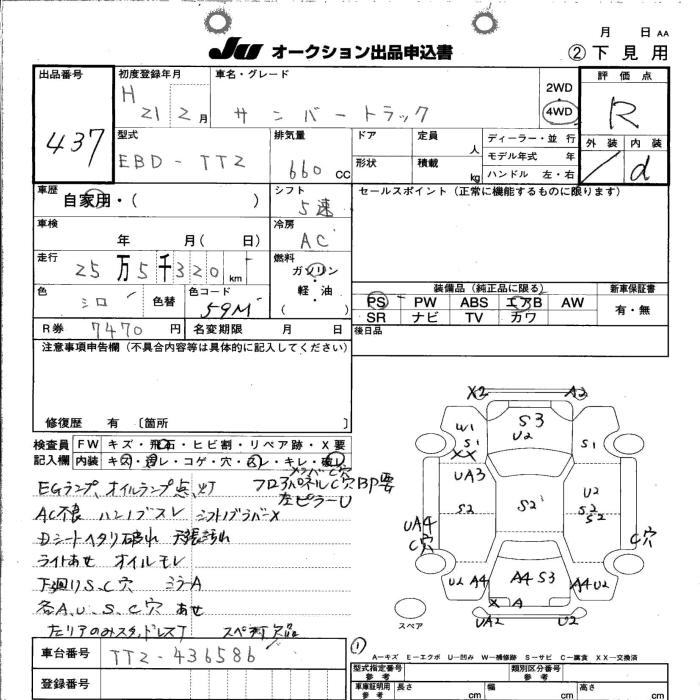 月 日 AA
JU オークション出品申込書
② 下見用
出品番号 初度登録年月 車名・グレード 評価点
H 21年 2月 サンバートラック
2WD
4WD
R
437
型式 排気量 ドア 定員 人 ディーラー・並行
外装 内装
EBD-TT2 660 CC
モデル年式 年
形状 積載 kg ハンドル 左・右
/ d
車歴 シフト セールスポイント (正常に機能するものに限ります)
自家用・( ) 5速
車検 冷房
年 月( 日) AC
走行 燃料
25万5千320km ガソリン・軽油
( )
装備品 (純正品に限る) 新車保証書
色 色替 色コード
シロ 59M
PS PW ABS エアB AW 有・無
SR ナビ TV カワ
R券 7470円 名変期限 月 日
後日品
注意事項申告欄 (不具合内容等は具体的に記入してください)
修復歴 有 〔箇所 〕
検査員記入欄 FW キズ・飛石・ヒビ割・リペア跡・X要
内装 キズ・汚レ・コゲ・穴・スレ・キレ・破レ
EGランプ、オイルランプ点灯
フロアパネルC穴BP要
左ピラーU
AC不良 ハンドブスレ シフトノブラバーX
Dシートヘタリ破れ 天張汚れ
ライトあせ オイルモレ
下廻りS、C穴 ミラーA
各A、U、S、C穴 あせ
X2 A2
W1 S3 U2
S1 S1
XX
UA3 U2
S2 S2 S2 S2
UA4 C穴 C穴
U2 A4 A4 S3 A4 U2
X A
UA2 U2
スペア
①
車台番号 TT2-436586
登録番号
A-キズ E-エクボ U-凹み W-補修跡 S-サビ C-腐食 XX-交換済
型式指定番号 参考 類別区分番号 参考
車庫証明用 参考 長さ cm 幅 cm 高さ cm